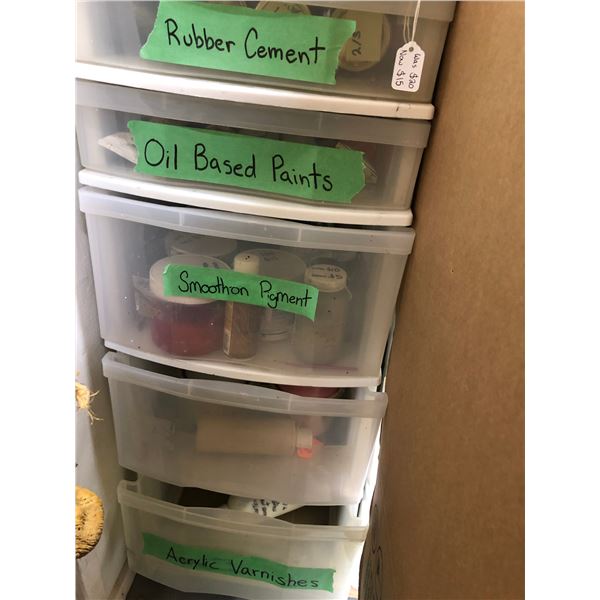 Rubber Cement
2/3
Was $20
Now $15
Oil Based Paints
Smoothon Pigment
Acrylic Varnishes